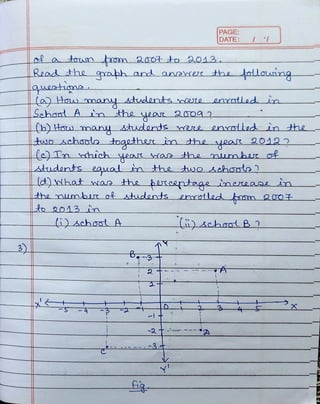 PAGE:
DATE: / /
of a town from 2007 to 2013.
Read the graph and answer the following
questions.
(a) How many students were enrolled in
School A in the year 2009?
(b) How many students were enrolled in the
two schools together in the year 2012?
(c) In which year was the number of
students equal in the two schools?
(d) What was the percentage increase in
the number of students enrolled from 2007
to 2013 in
(i) school A (ii) school B?
3)
Y
B 3
2 A
1
X' -5 -4 -3 -2 -1 0 1 2 3 4 5 X
-1
-2 D
C -3
Y'
Fig.